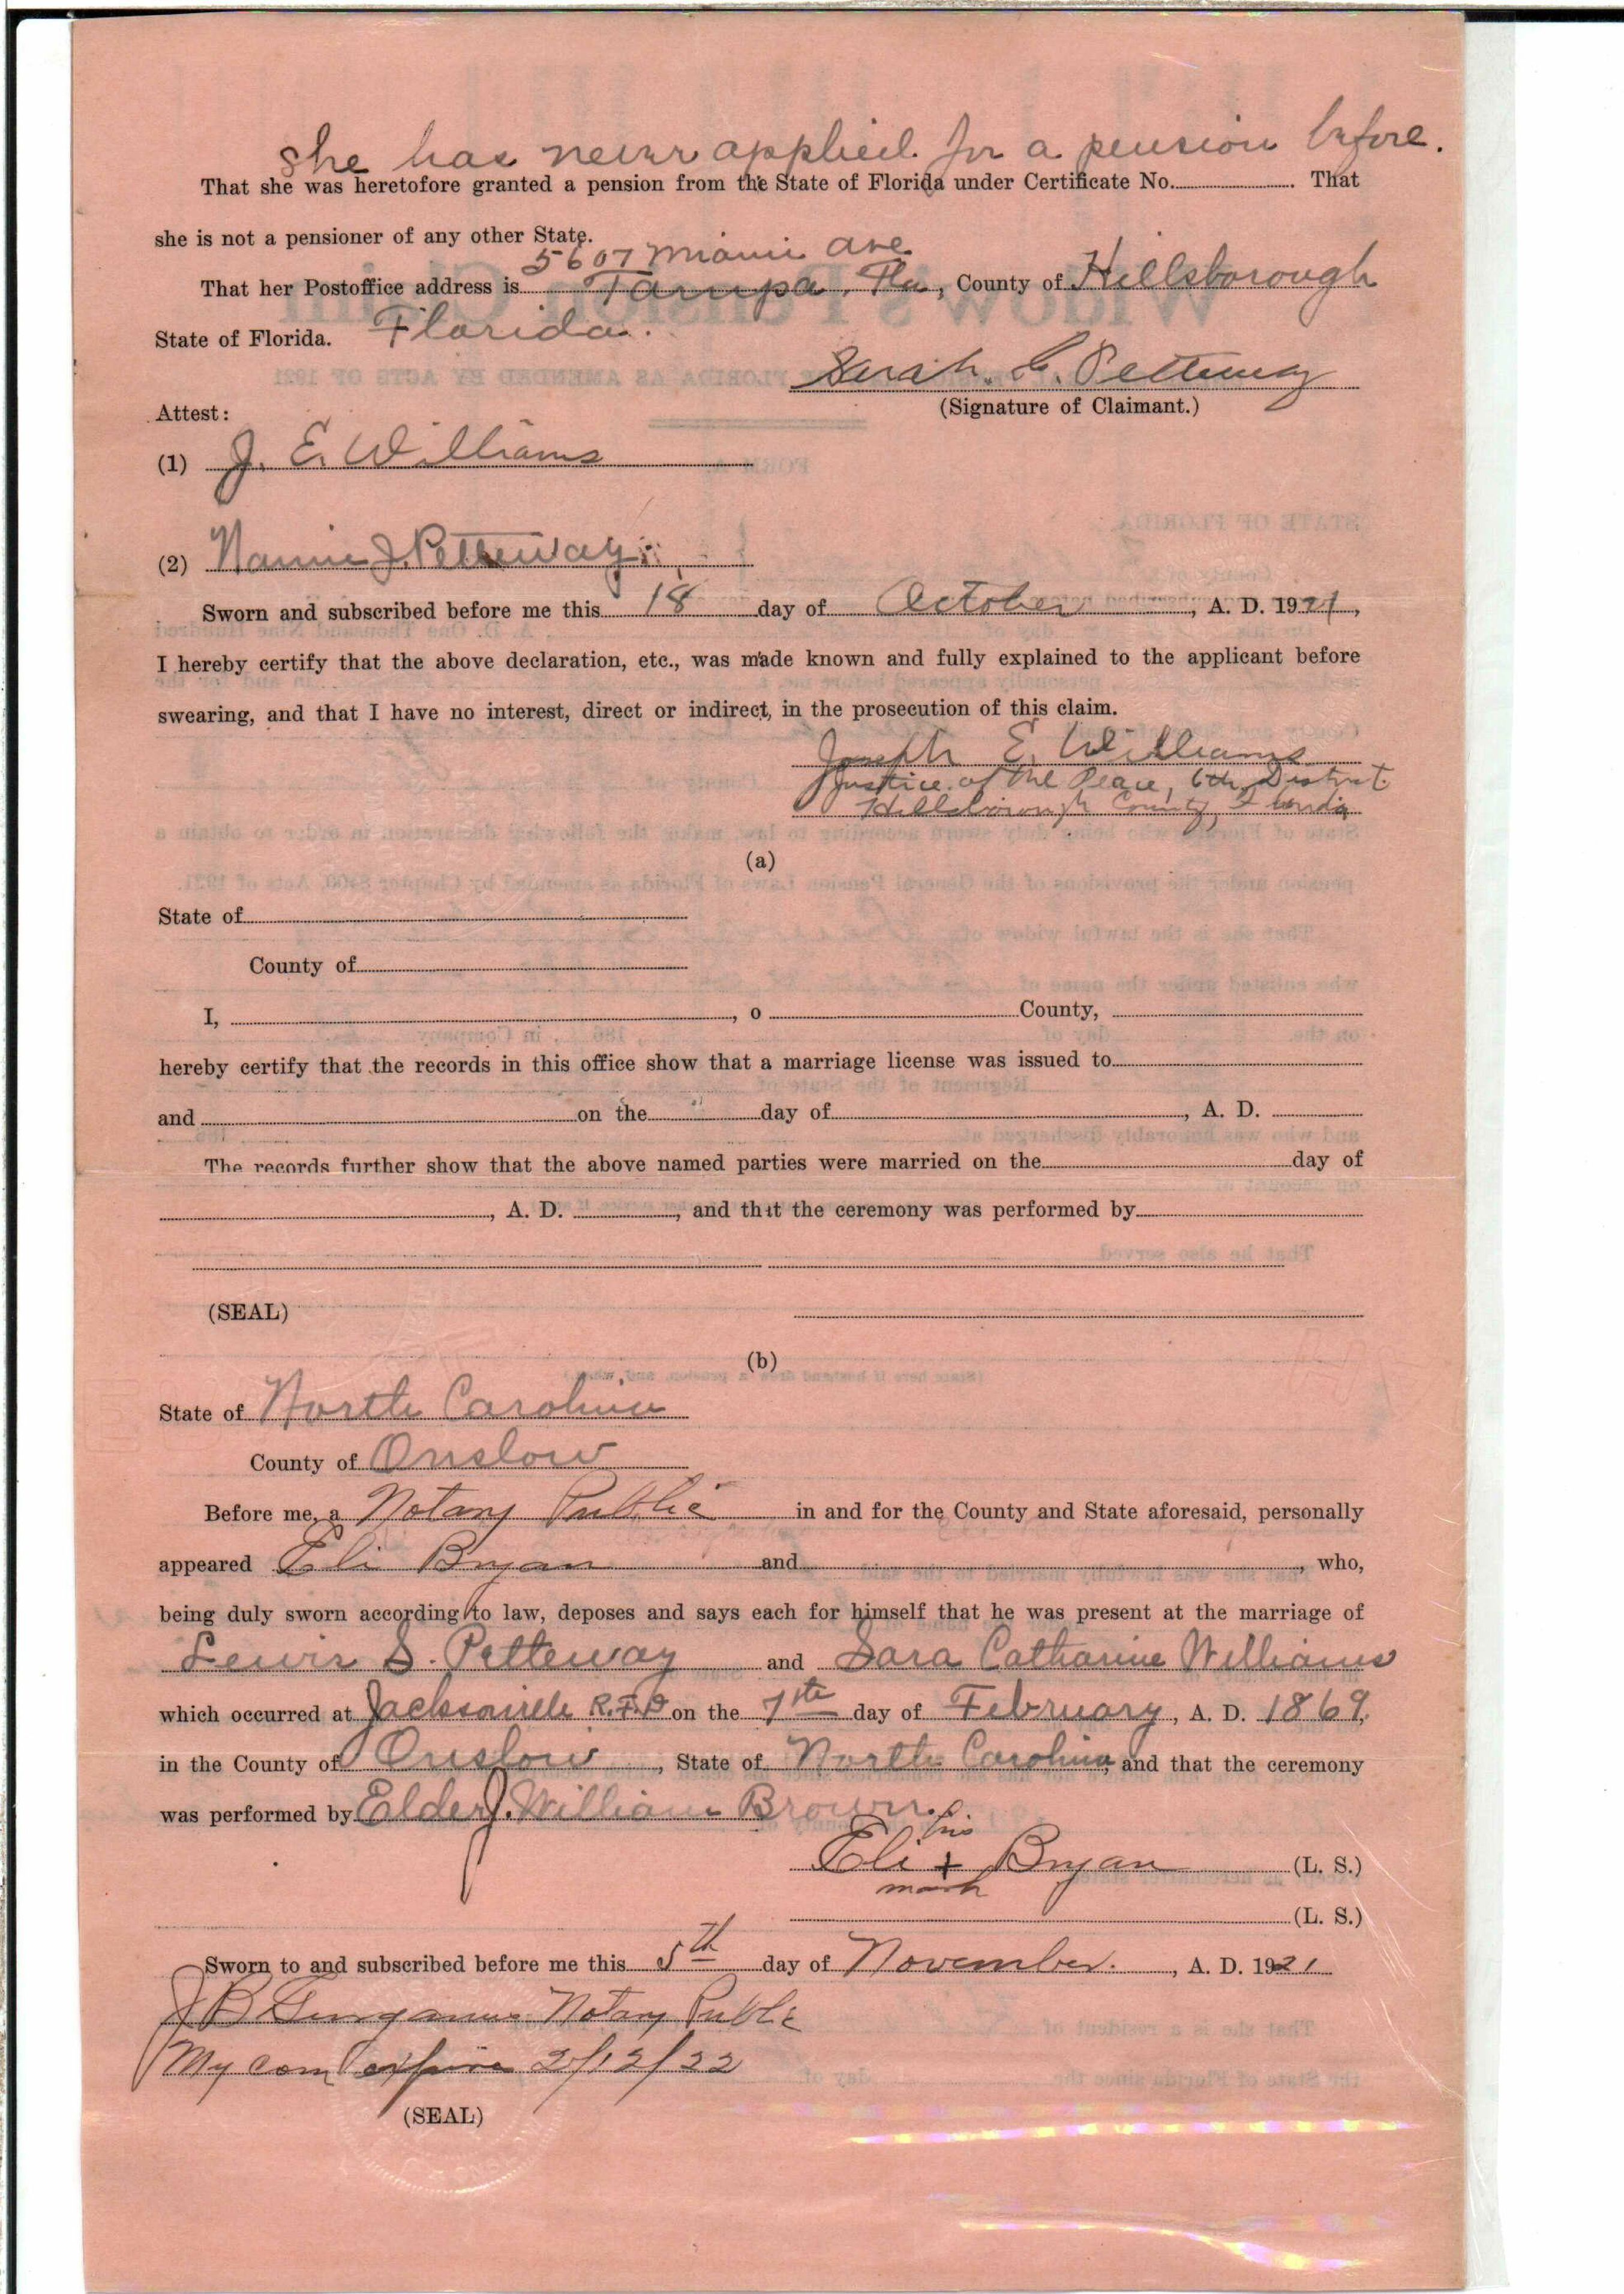 she has never applied for a pension before.
That she was heretofore granted a pension from the State of Florida under Certificate No. . That
she is not a pensioner of any other State.
5607 Miami Ave
That her Postoffice address is Tampa, Fla, County of Hillsborough
State of Florida. Florida.
Sarah. C. Petteway
(Signature of Claimant.)
Attest:
(1) J. E. Williams
(2) Nannie J. Petteway
Sworn and subscribed before me this 18 day of October, A. D. 1921,
I hereby certify that the above declaration, etc., was made known and fully explained to the applicant before
swearing, and that I have no interest, direct or indirect, in the prosecution of this claim.
Joseph E. Williams
Justice of the Peace, 6th District
Hillsborough County Florida
(a)
State of
County of
I, , o County,
hereby certify that the records in this office show that a marriage license was issued to
and on the day of , A. D.
The records further show that the above named parties were married on the day of
, A. D. , and that the ceremony was performed by
(SEAL)
(b)
State of North Carolina
County of Onslow
Before me, a Notary Public in and for the County and State aforesaid, personally
appeared Eli Bryan and , who,
being duly sworn according to law, deposes and says each for himself that he was present at the marriage of
Lewis S. Petteway and Sara Catharine Williams
which occurred at Jacksonville R.F.D on the 7th day of February, A. D. 1869.
in the County of Onslow, State of North Carolina, and that the ceremony
was performed by Elder J. William Brown.
his
Eli + Bryan (L. S.)
mark
(L. S.)
Sworn to and subscribed before me this 5th day of November. , A. D. 1921
J B Notary Public
My com expire 2/12/22
(SEAL)